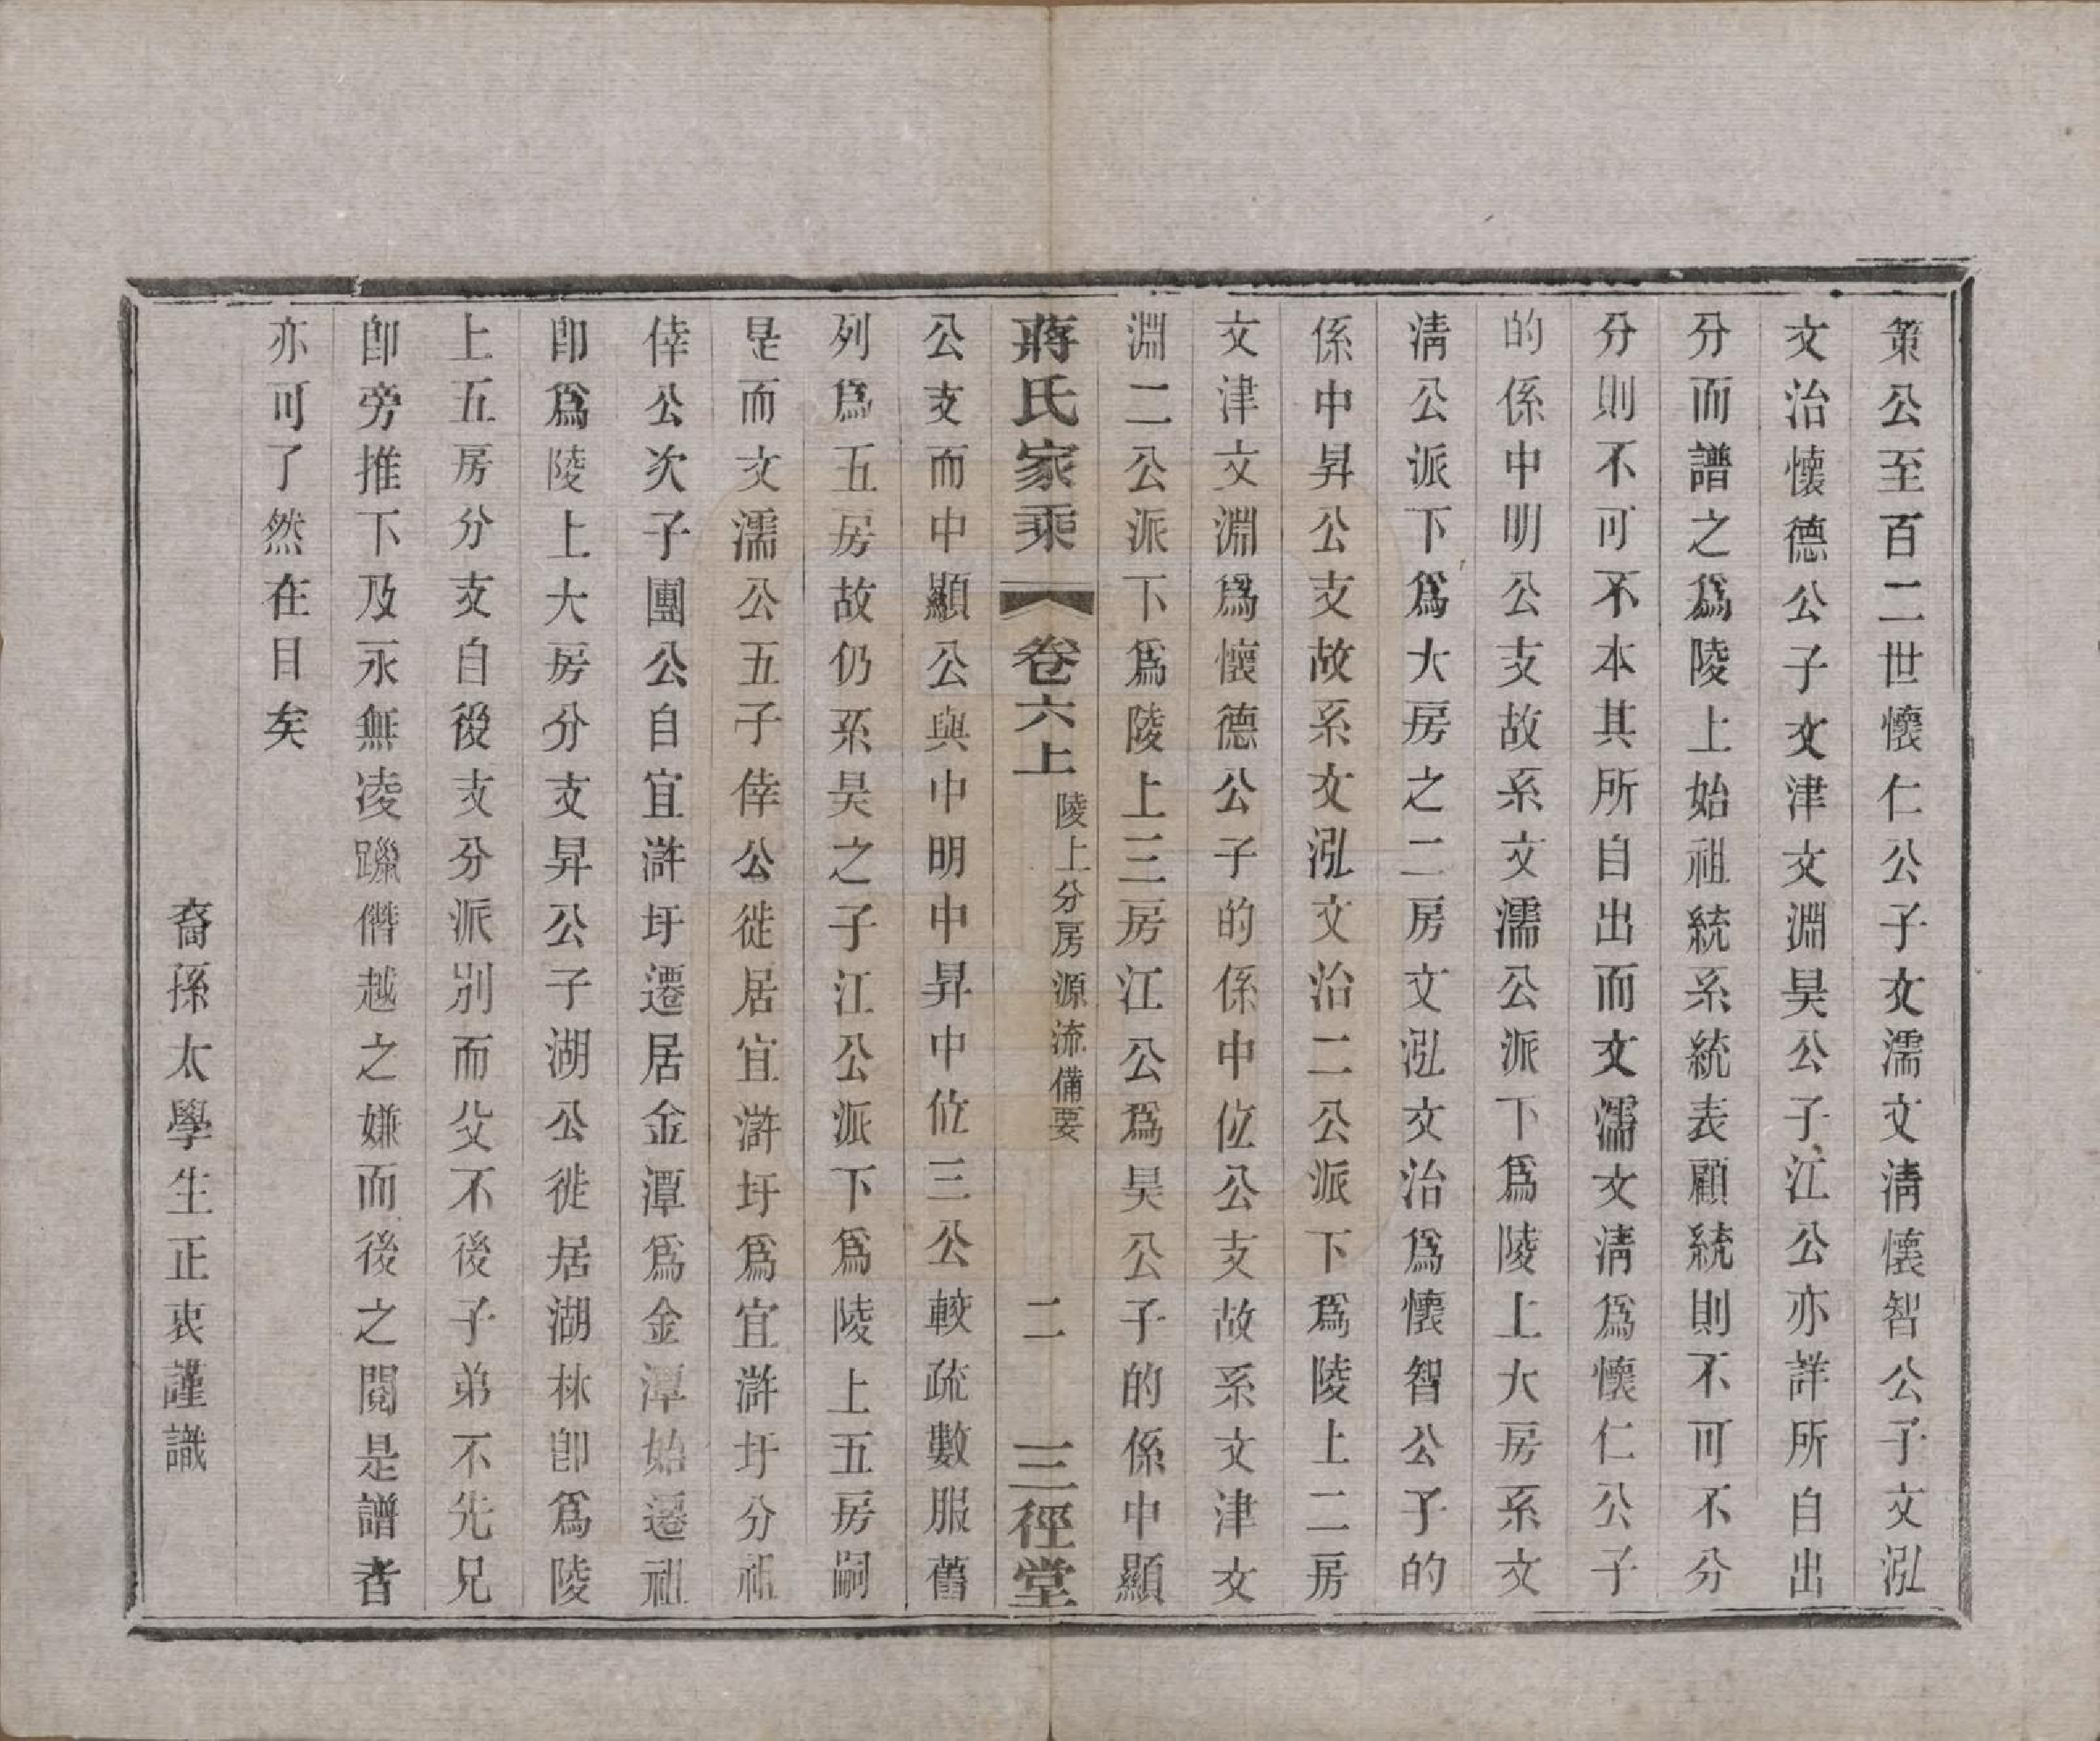 策公至百二世懷仁公子文濡文淸懷智公子文泓
文治懷德公子文津文淵昊公子江公亦詳所自出
分而譜之爲陵上始祖統系統表顧統則不可不分
分則不可不本其所自出而文濡文淸爲懷仁公子
的係中明公支故系文濡公派下爲陵上大房系文
淸公派下爲大房之二房文泓文治爲懷智公子的
係中昇公支故系文泓文治二公派下爲陵上二房
文津文淵爲懷德公子的係中位公支故系文津文
淵二公派下爲陵上三房江公爲昊公子的係中顯
蔣氏家乘 卷六上 陵上分房源流備要 二 三徑堂
公支而中顯公與中明中昇中位三公較疏數服舊
列爲五房故仍系昊之子江公派下爲陵上五房嗣
是而文濡公五子倖公徙居宜滸圩爲宜滸圩分祖
倖公次子團公自宜滸圩遷居金潭爲金潭始遷祖
卽爲陵上大房分支昇公子湖公徙居湖林卽爲陵
上五房分支自後支分派別而父不後子弟不先兄
卽旁推下及永無凌躐僭越之嫌而後之閱是譜者
亦可了然在目矣
裔孫太學生正衷謹識